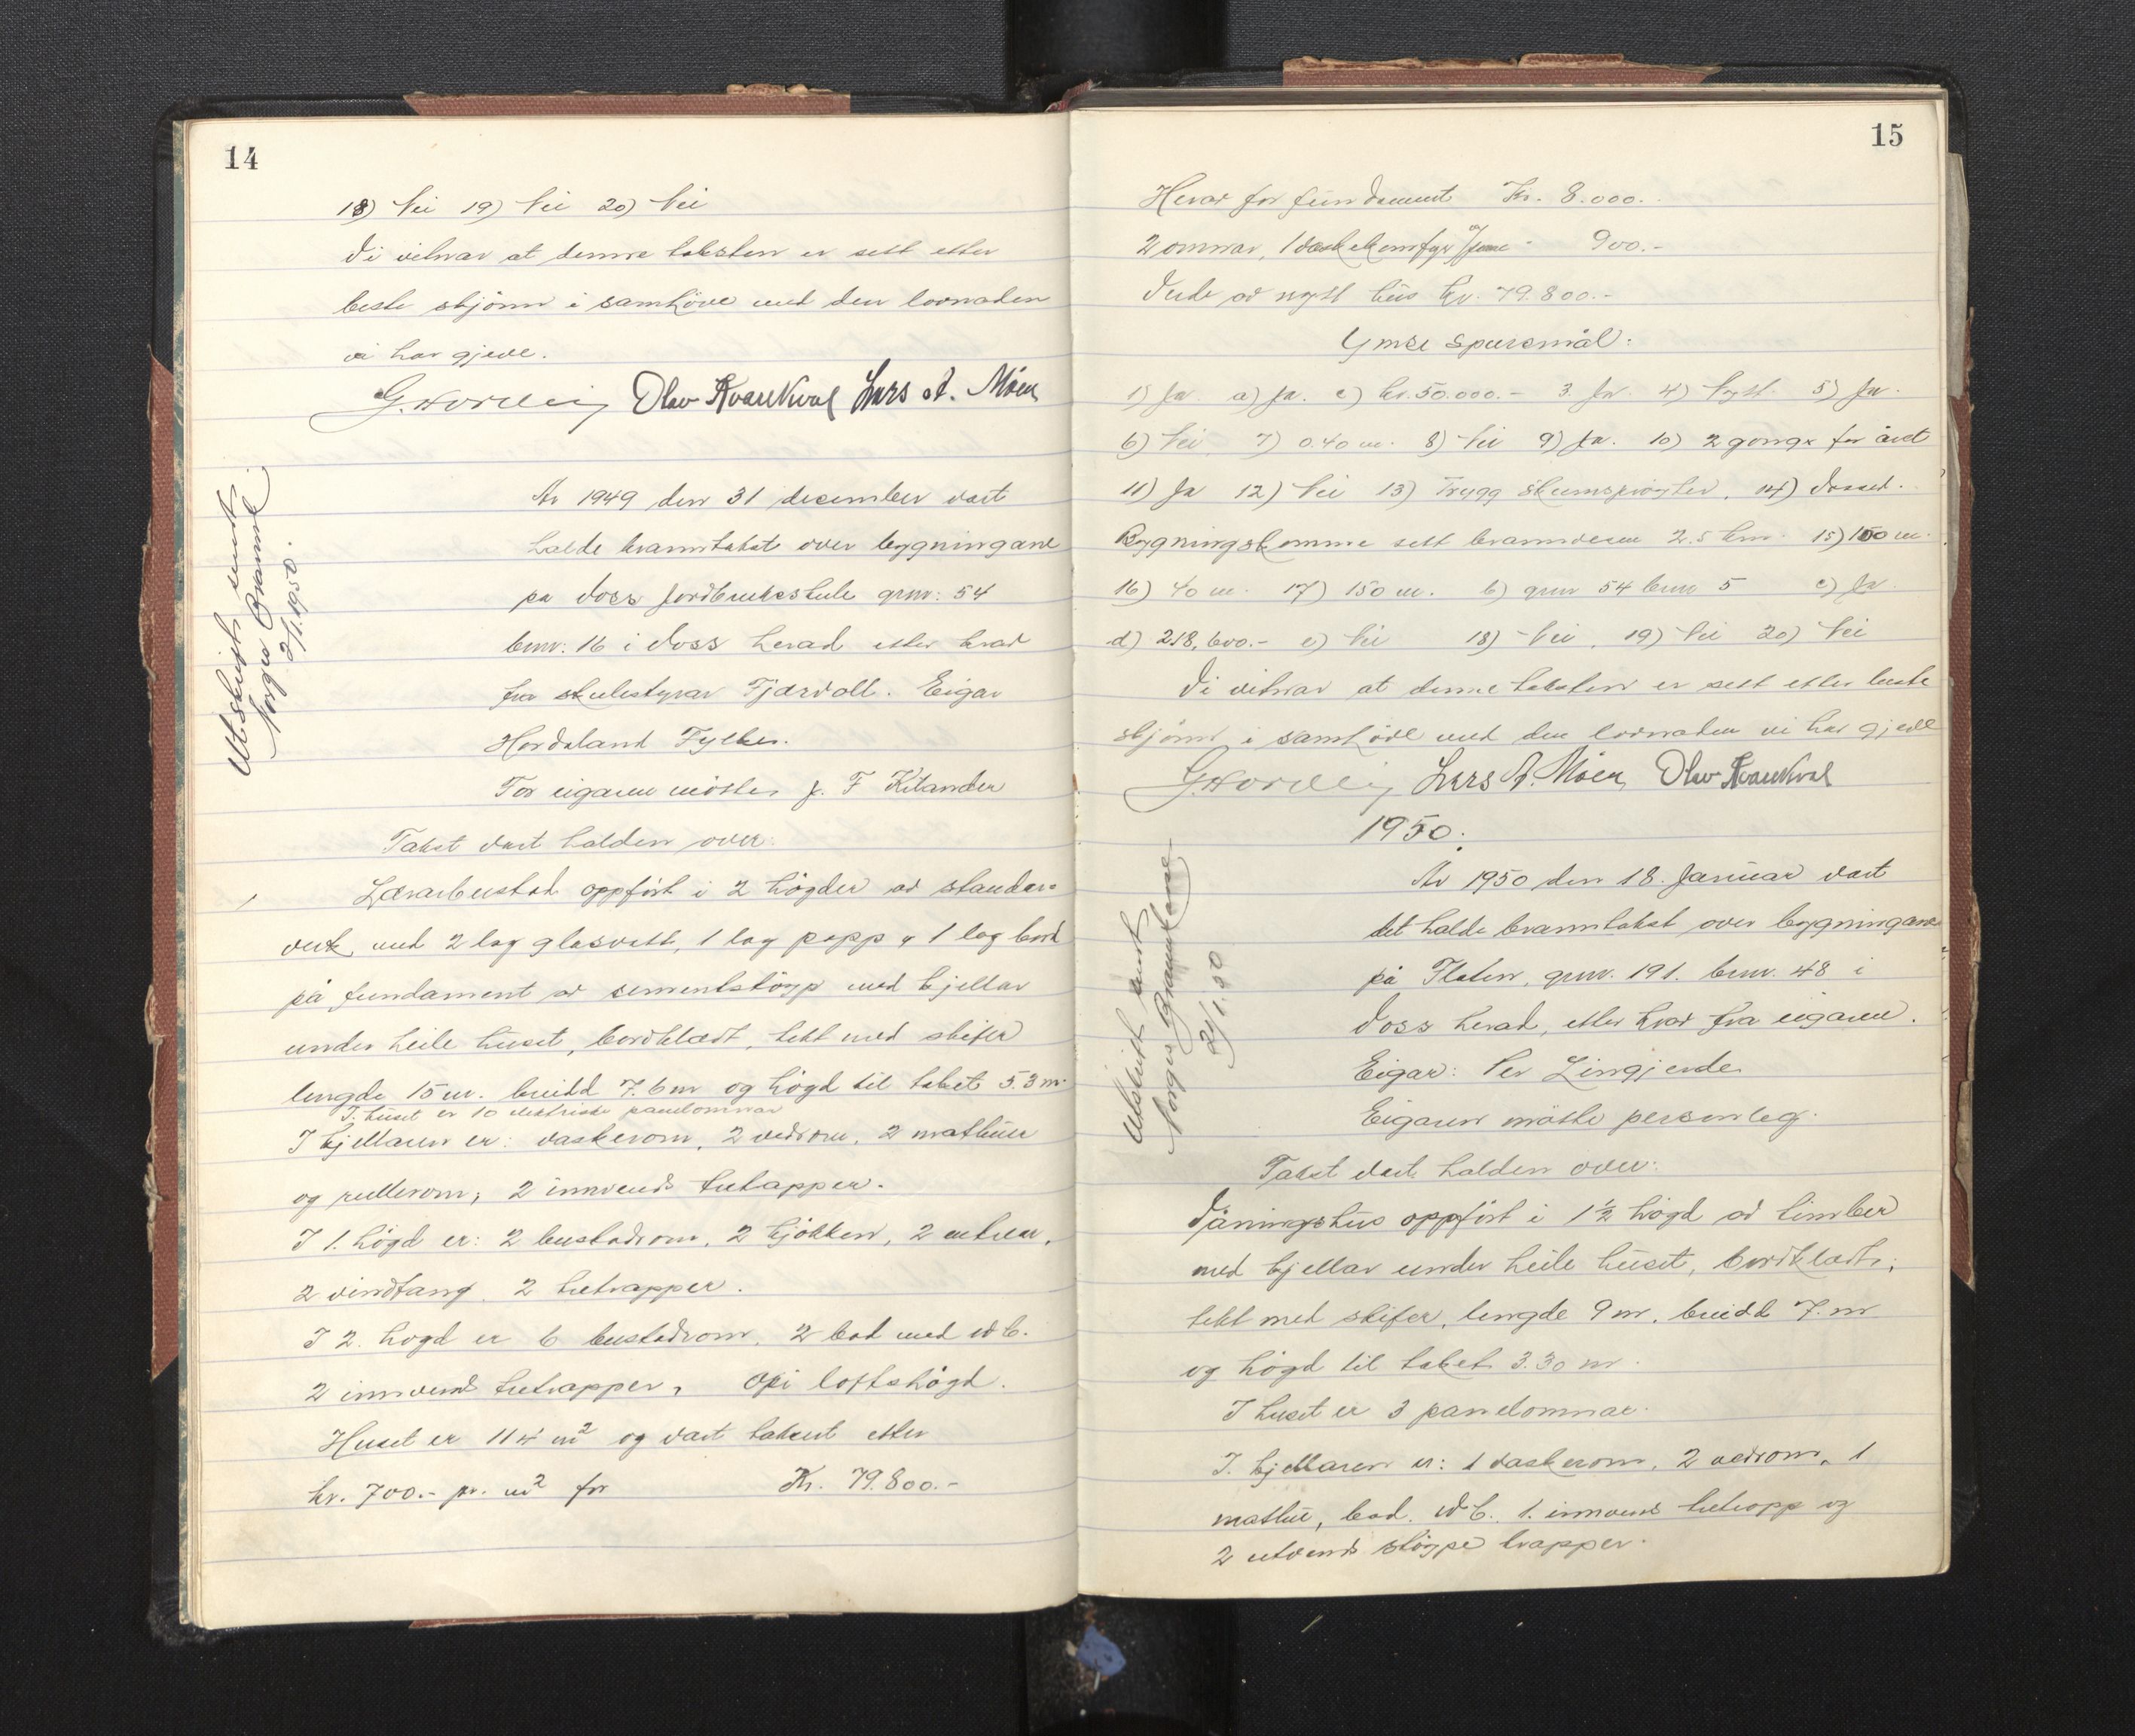 14
18) Nei 19) Nei 20) Nei
Vi vitnar at denne taksten er sett etter
beste skjönn i samhöve med den lovnaden
vi har gjeve.
Olav Kvarekval Lars A. Möen
Utskrift sendt
Norges Brannk
2/1. 1950.
År 1949 den 31 desember vart
halde branntakst over bygningane
på Voss Jordbruksskule gnr: 54
bnr: 16 i Voss herad etter krav
fra skulestyrar Tjærvoll. Eigar
Hordaland Fylke.
For eigaren mötte J. F Kilander
Takst vart halden over:
1 Lærarbustad oppfört i 2 högder av stender=
verk, med 2 lag glasvatt, 1 lag papp & 1 lag bord
på fundament av sementstöyp med kjellar
under heile huset, bordklædt, tekt med skifer
lengde 15 m. breidd 7.6 m og högd til taket 5.3 m.
I huset er 10 elektriske panelomnar
I kjellaren er: vaskerom, 2 vedrom, 2 matbuer
og rullerom, 2 innvends tretapper.
I 1. högd er: 2 bustadrom, 2 kjökken, 2 entrear,
2 vindfang. 2 tretrapper.
I 2. högd er 6 bustadrom, 2 bad med W.C.
2 innvend tretrapper, opi loftshögd.
Huset er 114 m² og vart taksert etter
kr. 700.- pr. m² for Kr. 79.800.-
15
Herav for fundament Kr. 8.000.-
2 omnar, 1 900.-
Verde av nytt hus kr. 79.800.-
Ymse spursmål:
1) Ja a) Ja. c) kr. 50.000.- 3. Ja. 4) Nytt. 5) Ja.
6) Nei, 7) 0.40 m. 8) Nei 9) Ja. 10) 2 gonger for året
11) Ja 12) Nei 13) Trygg skumsprøyter. 14) Vossev.
Bygningskomme sett brannvesen 2.5 km. 15) 150 m.
16) 40 m. 17) 150 m. b) gnr 54 bnr 5 c) Ja
d) 218,600.- e) Nei 18) Nei, 19) Nei 20) Nei
Vi vitnar at denne taksten er sett etter beste
skjönn i samhöve med den lovnaden vi har gjeve
Lars A. Möen, Olav Kvarekval
1950.
Utskrift sendt
Norges Brannkasse
24/1. 50
År 1950 den 18. Januar vart
det halde branntakst over bygningane
på Flaten, gnr. 191. bnr. 48 i
Voss herad, etter krav fra eigaren.
Eigar: Per Lingjerde
Eigaren mötte personleg.
Takst vart halden over:
Våningshus oppfört i 1½ högd av timber
med kjellar under heile huset, bordklædt,
tekt med skifer, lengde 9 m. breidd 7. m
og högd til taket 3.30 m.
I huset er 3 panelomnar.
I. kjellaren er: 1 vaskerom, 2 vedrom, 1
matbu, bad. W.C. 1. innvend tretrapp og
2 utvends stöypt trapper.